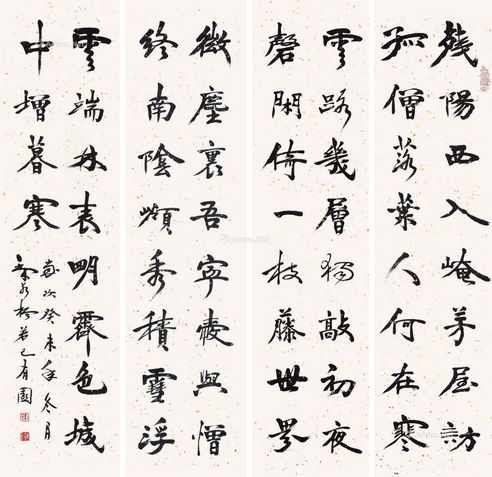 殘陽西入崦茅屋訪
孤僧落葉人何在寒
雲路幾層獨敲初夜
磬閑倚一枝藤世界
微塵裏吾寧愛與憎
終南陰嶺秀積雪浮
雲端林表明霽色城
中增暮寒
歲次癸未年冬月
若已有園